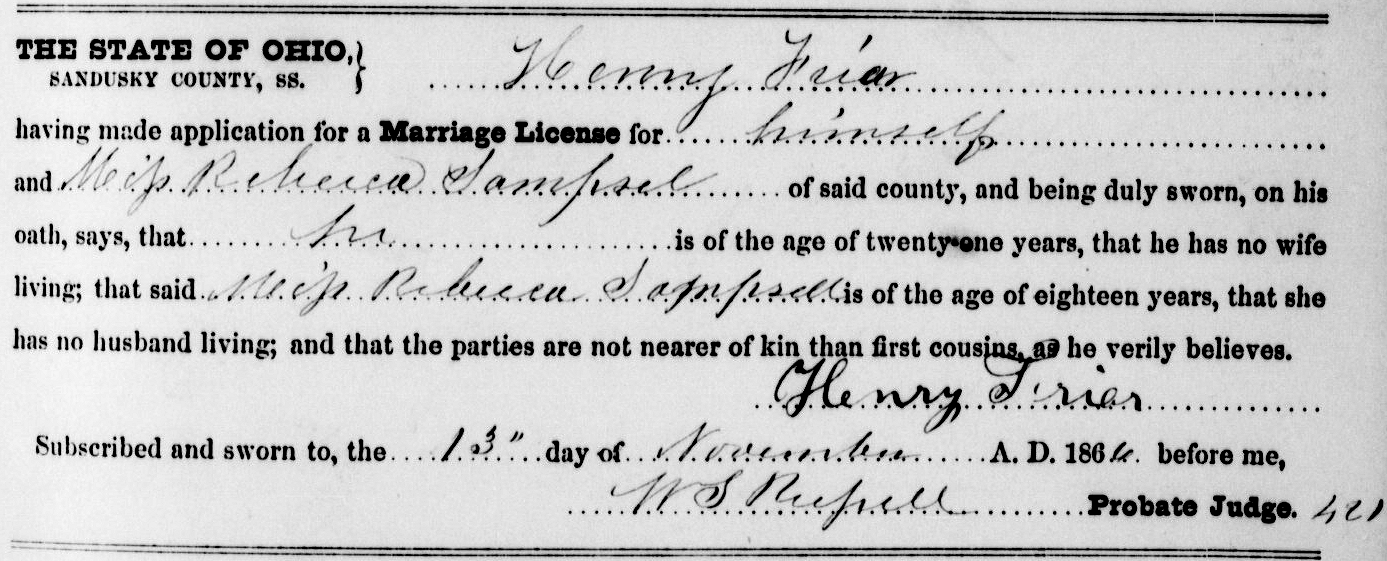 THE STATE OF OHIO,} Henry Friar
SANDUSKY COUNTY, SS.
having made application for a Marriage License for himself
and Miss Rebecca Sampsel of said county, and being duly sworn, on his
oath, says, that he is of the age of twenty-one years, that he has no wife
living; that said Miss Rebecca Sampsell is of the age of eighteen years, that she
has no husband living; and that the parties are not nearer of kin than first cousins, as he verily believes.
Henry Friar
Subscribed and sworn to, the 13" day of November A. D. 186 before me,
W S Russell Probate Judge. 421